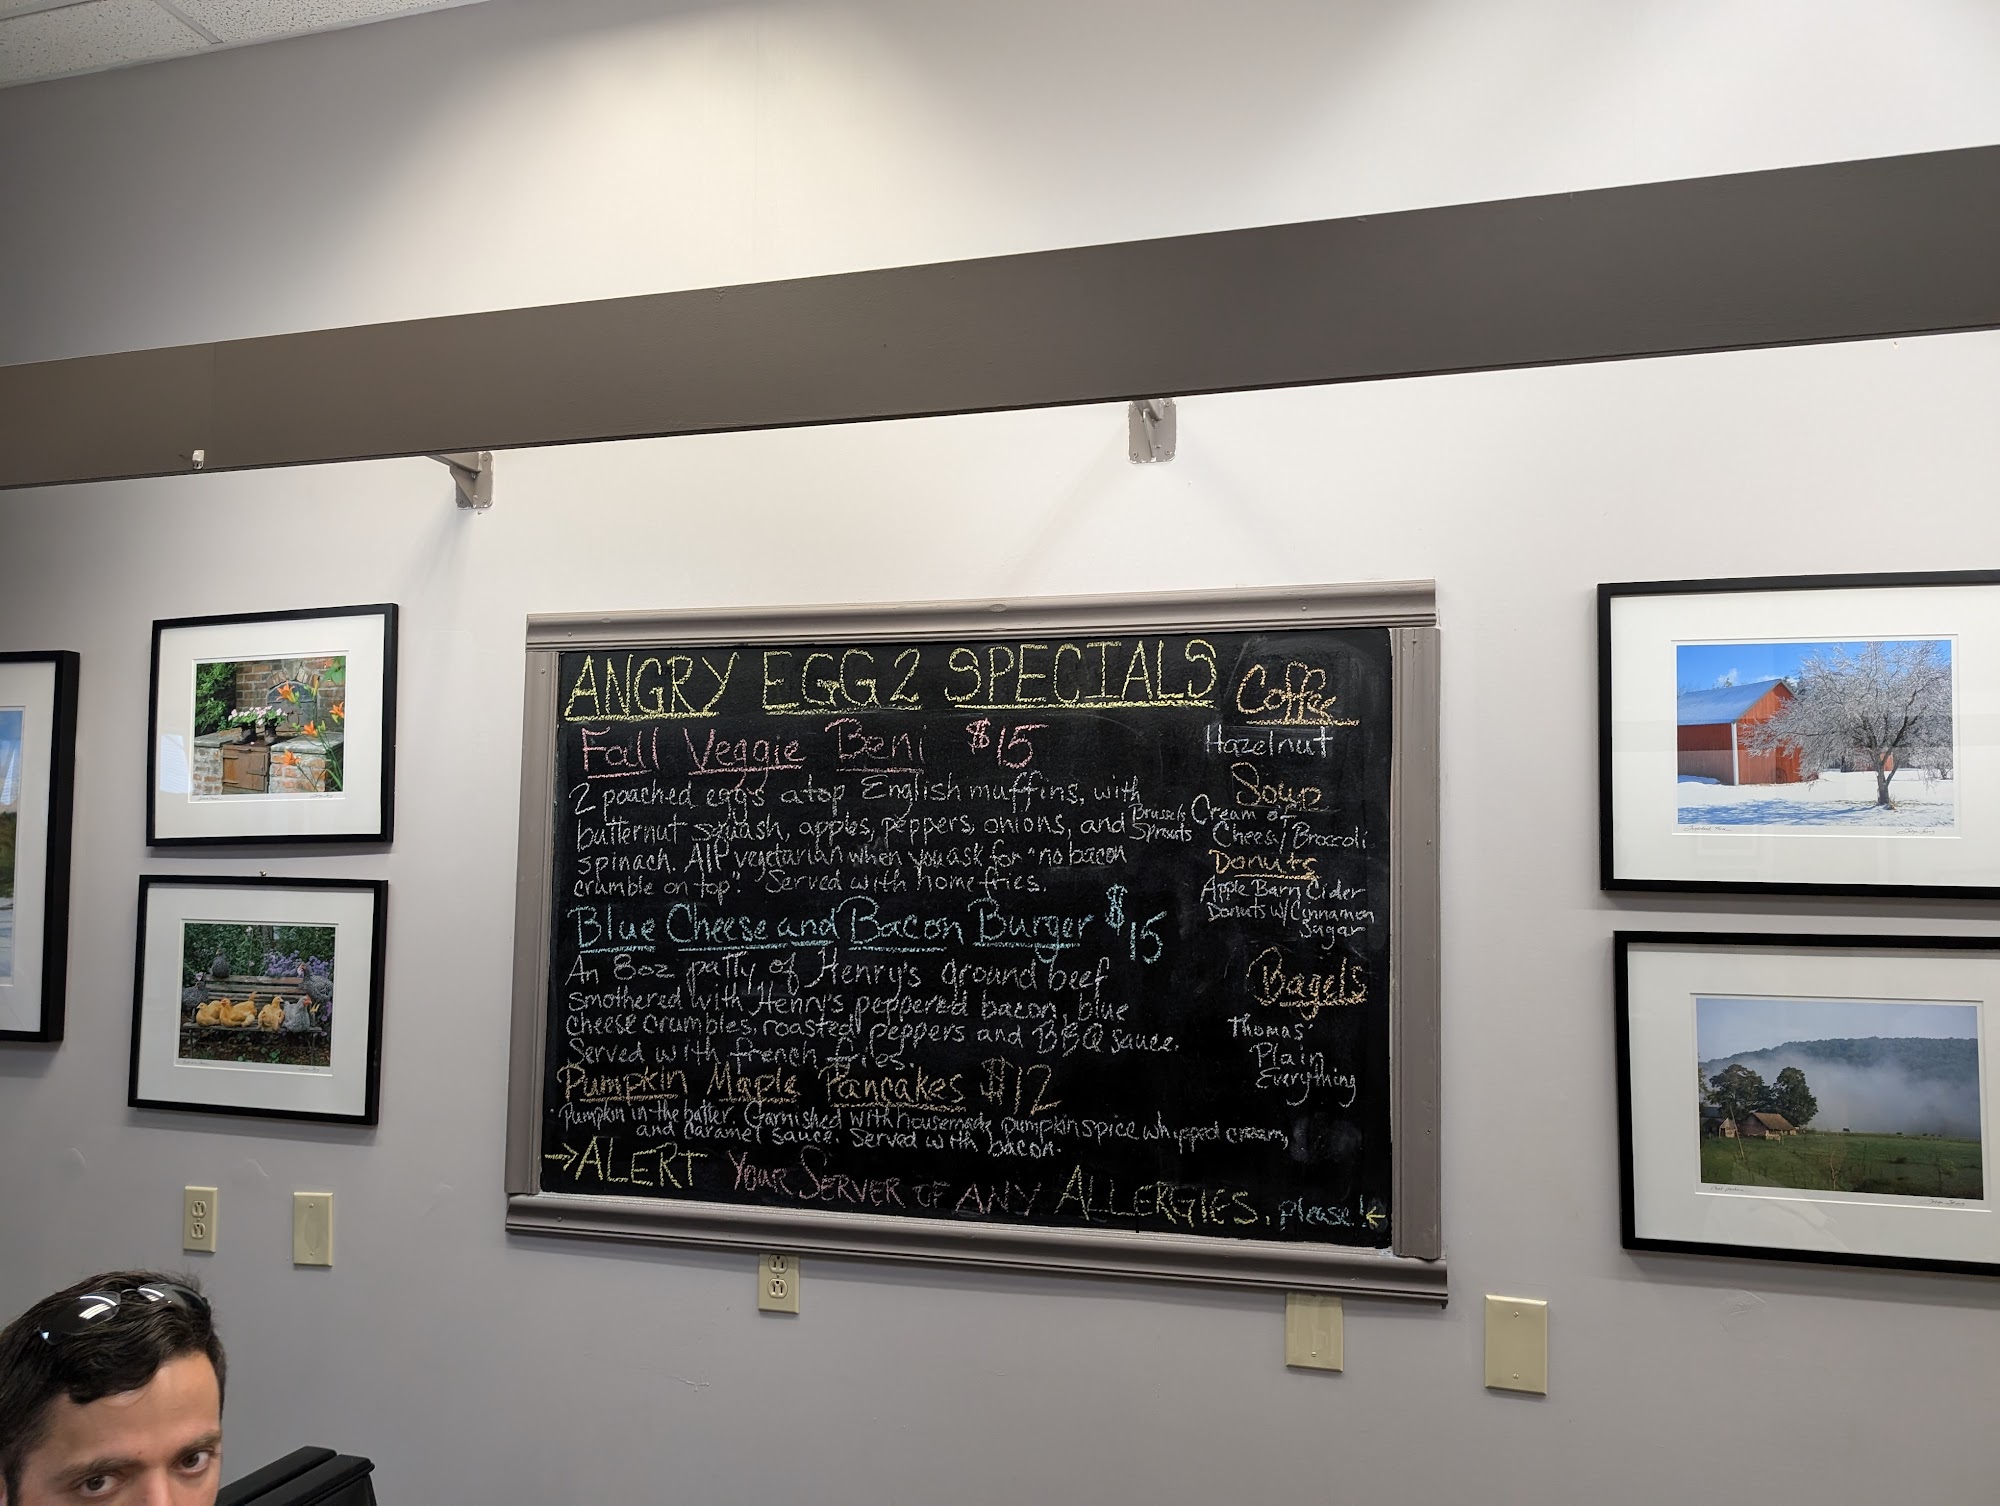 ANGRY EGG 2 SPECIALS
Fall Veggie Beni $15
2 poached eggs atop English muffins, with
butternut squash, apples, peppers, onions, and Brussels Sprouts
spinach. All vegetarian when you ask for "no bacon
crumble on top". Served with home fries.
Blue Cheese and Bacon Burger $15
An 8oz patty of Henry's ground beef
smothered with Henry's peppered bacon, blue
cheese crumbles, roasted peppers and BBQ sauce.
Served with french fries.
Pumpkin Maple Pancakes $12
Pumpkin in the batter. Garnished with housemade pumpkin spice whipped cream,
and caramel sauce. Served with bacon.
→ALERT YOUR SERVER OF ANY ALLERGIES, please!←
Coffee
Hazelnut
Soup
Cream of
Cheesy Broccoli
Donuts
Apple Barn Cider
Donuts w/ Cinnamon
Sugar
Bagels
Thomas'
Plain
Everything